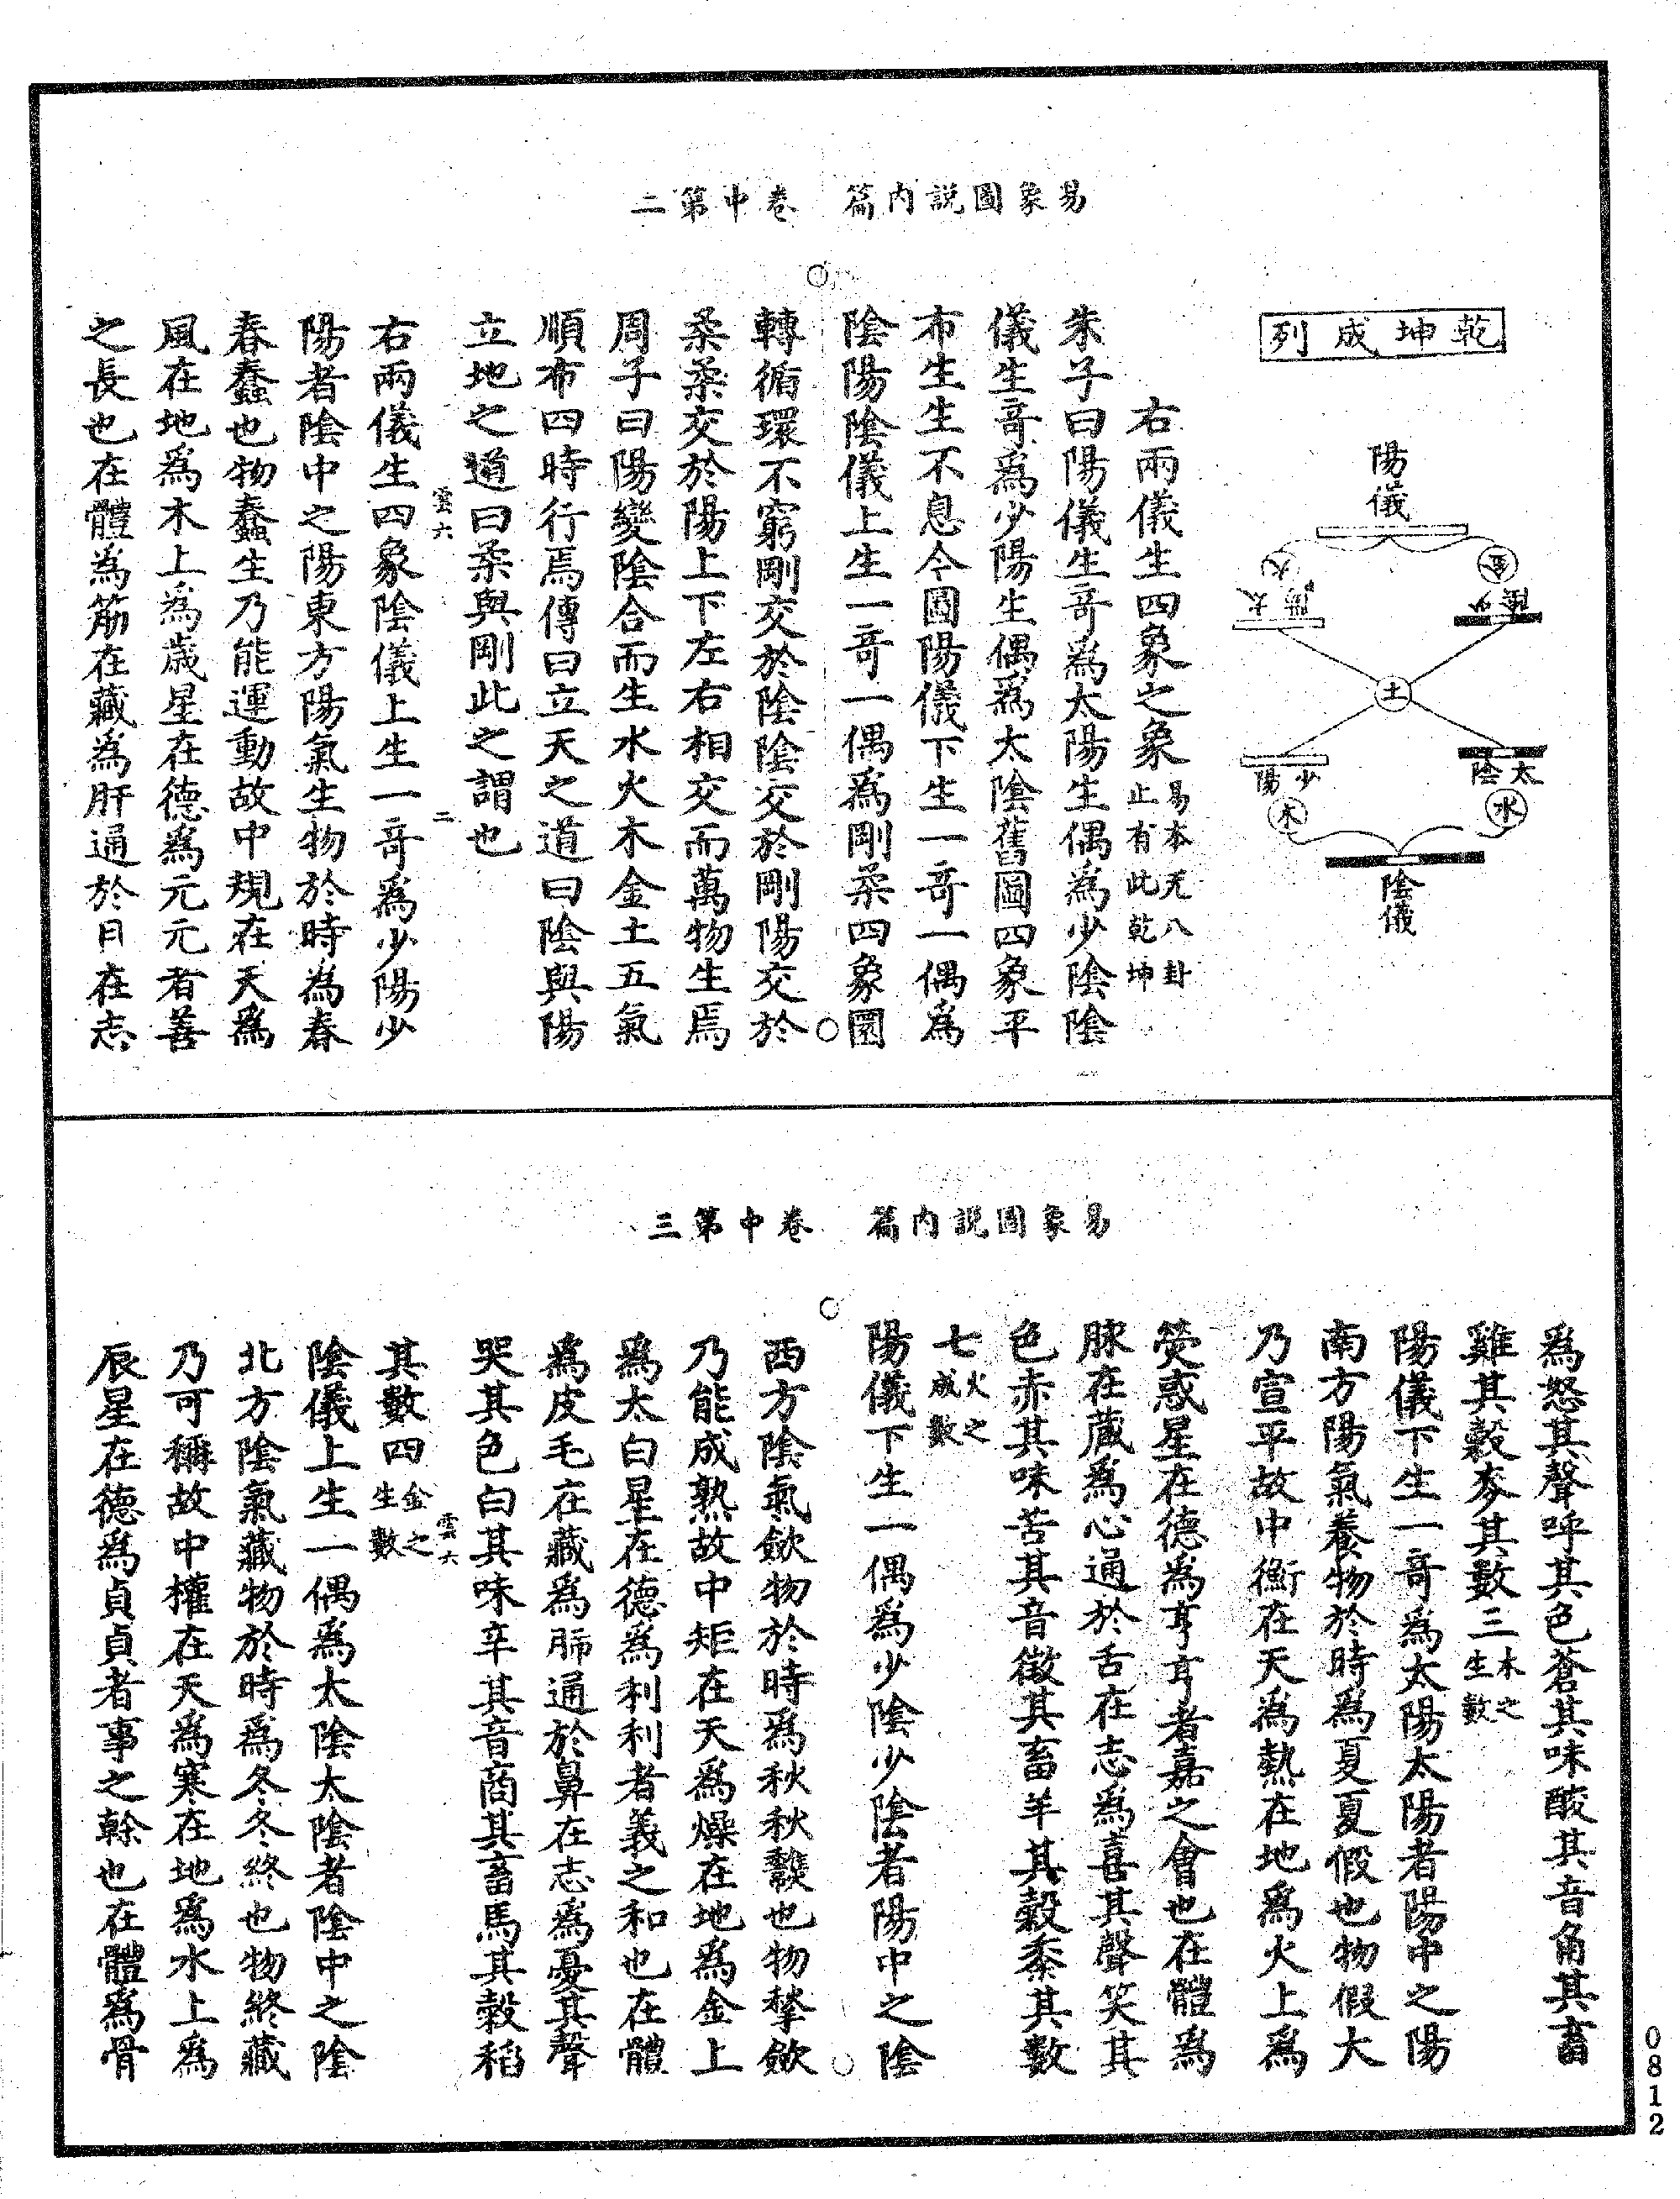 易象圖說內篇　卷中第二
乾坤成列
陽儀
金
少陰
火
太陽
土
太陰
水
少陽
木
陰儀
右兩儀生四象之象易本无八卦止有此乾坤
朱子曰陽儀生竒爲太陽生偶爲少陰陰
儀生竒爲少陽生偶爲太陰舊圖四象平
布生生不息今圖陽儀下生一竒一偶爲
陰陽陰儀上生一竒一偶爲剛柔四象圜
轉循環不窮剛交於陰陰交於剛陽交於
柔柔交於陽上下左右相交而萬物生焉
周子曰陽變陰合而生水火木金土五氣
順布四時行焉傳曰立天之道曰陰與陽
立地之道曰柔與剛此之謂也
雲六
二
右兩儀生四象陰儀上生一竒爲少陽少
陽者陰中之陽東方陽氣生物於時為春
春蠢也物蠢生乃能運動故中規在天爲
風在地爲木上為歲星在德爲元元者善
之長也在體為筋在藏爲肝通於目在志
易象圖說內篇　卷中第三
爲怒其聲呼其色蒼其味酸其音角其畜
雞其穀麥其數三木之生數
陽儀下生一竒爲太陽太陽者陽中之陽
南方陽氣養物於時爲夏夏假也物假大
乃宣平故中衡在天爲熱在地爲火上爲
熒惑星在德為亨亨者嘉之會也在體爲
脉在藏爲心通於舌在志爲喜其聲笑其
色赤其味苦其音徵其畜羊其穀黍其數
七火之成數
陽儀下生一偶爲少陰少陰者陽中之陰
西方陰氣斂物於時爲秋秋䵸也物揫斂
乃能成熟故中矩在天爲燥在地爲金上
爲太白星在德爲利利者義之和也在體
爲皮毛在藏爲肺通於鼻在志爲憂其聲
哭其色白其味辛其音商其畜馬其穀稻
雲六
其數四金之生數
陰儀上生一偶爲太陰太陰者陰中之陰
北方陰氣藏物於時爲冬冬終也物終藏
乃可稱故中權在天爲寒在地爲水上爲
辰星在德爲貞貞者事之榦也在體爲骨
0812